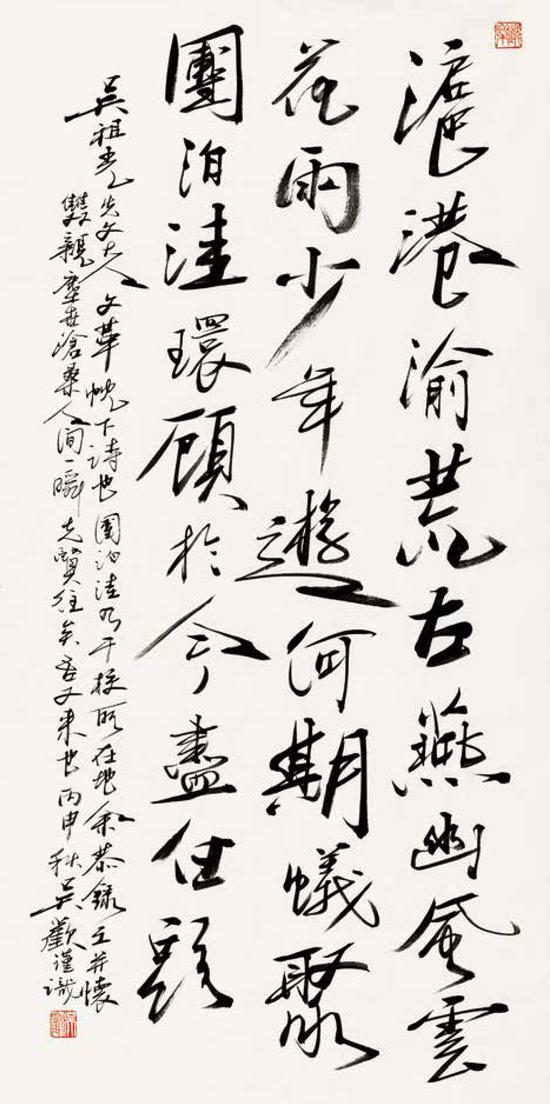 滬港渝荒古燕幽風雲
花雨少年遊何期蟻聚
團泊洼環顧於今盡
吳祖光先父大人文華下詩也團泊洼乃干校所在地余恭錄之并懷
雙親塵世滄桑人間一瞬先賢往矣吾又來也丙申秋吳歡謹識